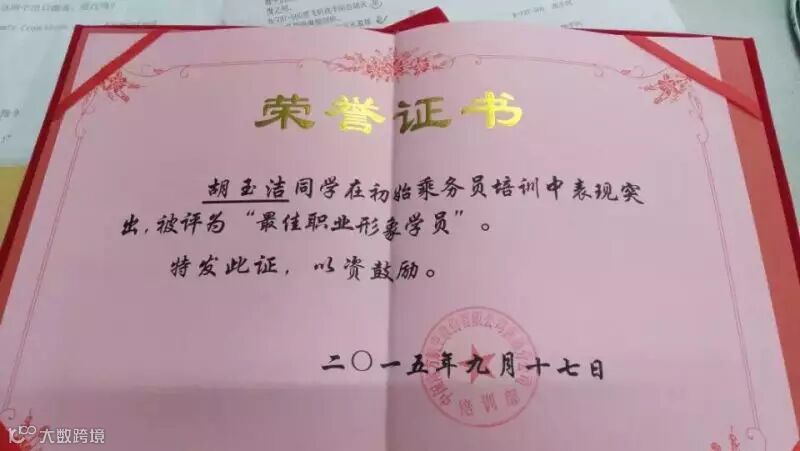 荣誉证书
胡玉洁同学在初始乘务员培训中表现突
出，被评为“最佳职业形象学员”。
特发此证，以资鼓励。
二〇一五年九月十七日
培训部
大数跨境